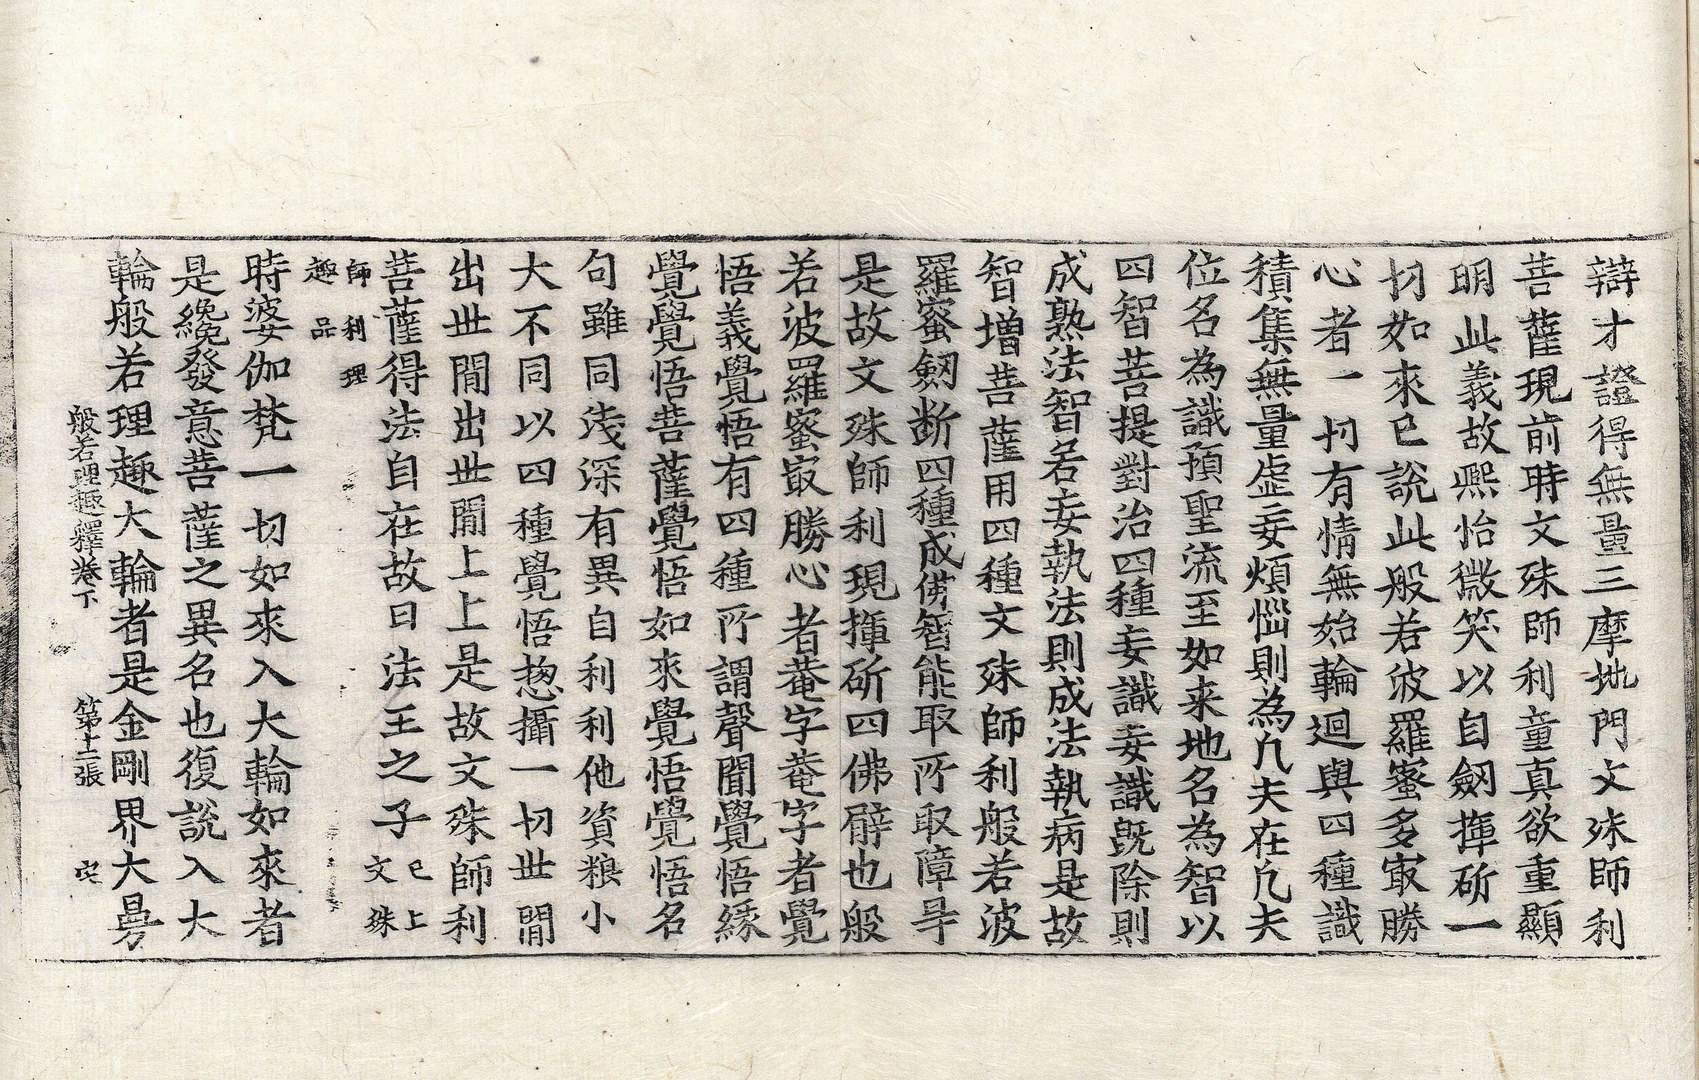 辯才證得無量三摩地門文殊師利
菩薩現前時文殊師利童真欲重顯
明此義故熈怡微笑以自劒揮斫一
切如來已說此般若波羅蜜多㝡勝
心者一切有情無始輪迴與四種識
積集無量虛妄煩惱則為凡夫在凡夫
位名為識預聖流至如来地名為智以
四智菩提對治四種妄識妄識旣除則
成熟法智名妄執法則成法執病是故
智增菩薩用四種文殊師利般若波
羅蜜劒断四種成佛智能取所取障㝵
是故文殊師利現揮斫四佛臂也般
若波羅蜜㝡勝心者菴字菴字者覺
悟義覺悟有四種所謂聲聞覺悟緣
覺覺悟菩薩覺悟如來覺悟覺悟名
句雖同浅深有異自利利他資粮小
大不同以四種覺悟揔攝一切世閒
出世閒出世閒上上是故文殊師利
菩薩得法自在故曰法王之子已上文殊
師利理趣品
時婆伽梵一切如來入大輪如來者
是纔發意菩薩之異名也復說入大
輪般若理趣大輪者是金剛界大曼
般若理趣釋卷下 第十二張